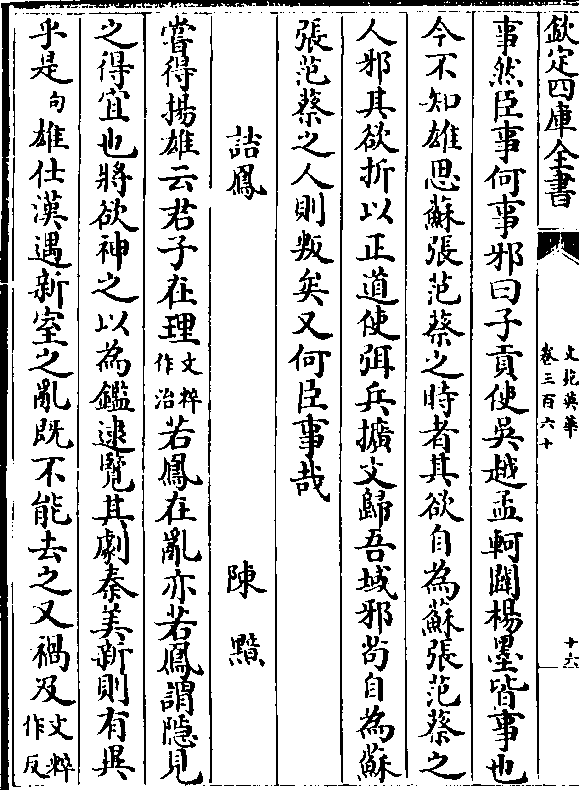 欽定四庫全書
文苑英華
卷三百六十
十六
事然臣事何事邪曰子貢使吳越孟軻闢楊墨皆事也
今不知雄思蘇張范蔡之時者其欲自為蘇張范蔡之
人邪其欲折以正道使弭兵擴文歸吾域邪苟自為蘇
張范蔡之人則叛矣又何臣事哉
詰鳳 陳黯
嘗得揚雄云君子在理文粹作治若鳳在亂亦若鳳謂隱見
之得宜也將欲神之以為鑑逮覽其劇秦美新則有異
乎是句雄仕漢遇新室之亂既不能去之又禍及文粹作反